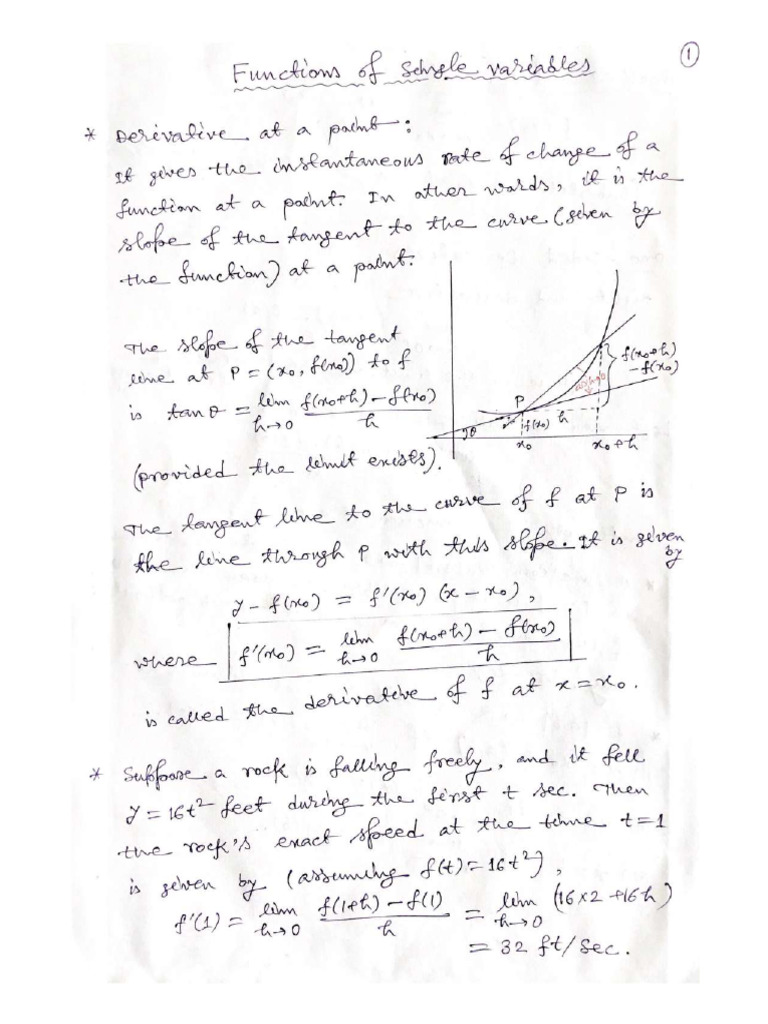 1
Functions of Single variables
* Derivative at a point:
It gives the instantaneous rate of change of a
function at a point. In other words, it is the
slope of the tangent to the curve (given by
the function) at a point.
The slope of the tangent
line at P = (x₀, f(x₀)) to f
is tan θ = lim h→0 (f(x₀+h) - f(x₀))/h
(provided the limit exists).
P
f(x₀)
h
θ
x₀
x₀+h
f(x₀+h)
- f(x₀)
as h→0
The tangent line to the curve of f at P is
the line through P with this slope. It is given
by
y - f(x₀) = f'(x₀) (x - x₀),
where f'(x₀) = lim h→0 (f(x₀+h) - f(x₀))/h
is called the derivative of f at x = x₀.
* Suppose a rock is falling freely, and it fell
y = 16t² feet during the first t sec. Then
the rock's exact speed at the time t=1
is given by (assuming f(t) = 16t²),
f'(1) = lim h→0 (f(1+h) - f(1))/h = lim h→0 (16×2 + 16h)
= 32 ft/sec.